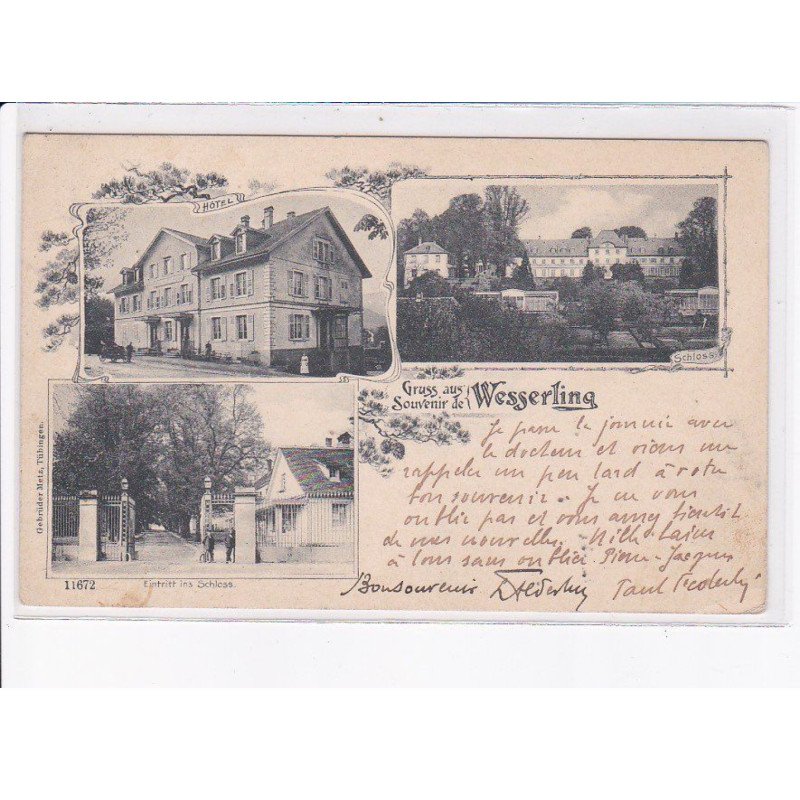 HÔTEL
Schloss.
Gruss aus
Souvenir de
Wesserling
Gebrüder Metz, Tübingen.
11672
Eintritt ins Schloss.
Je passe la journée avec
le docteur et viens me
rappeler un peu tard à votre
bon souvenir. Je ne vous
oublie pas et vous aurez bientôt
de mes nouvelles. Mille
à tous sans oublier Pierre-Jacques
Bonsouvenir
Paul